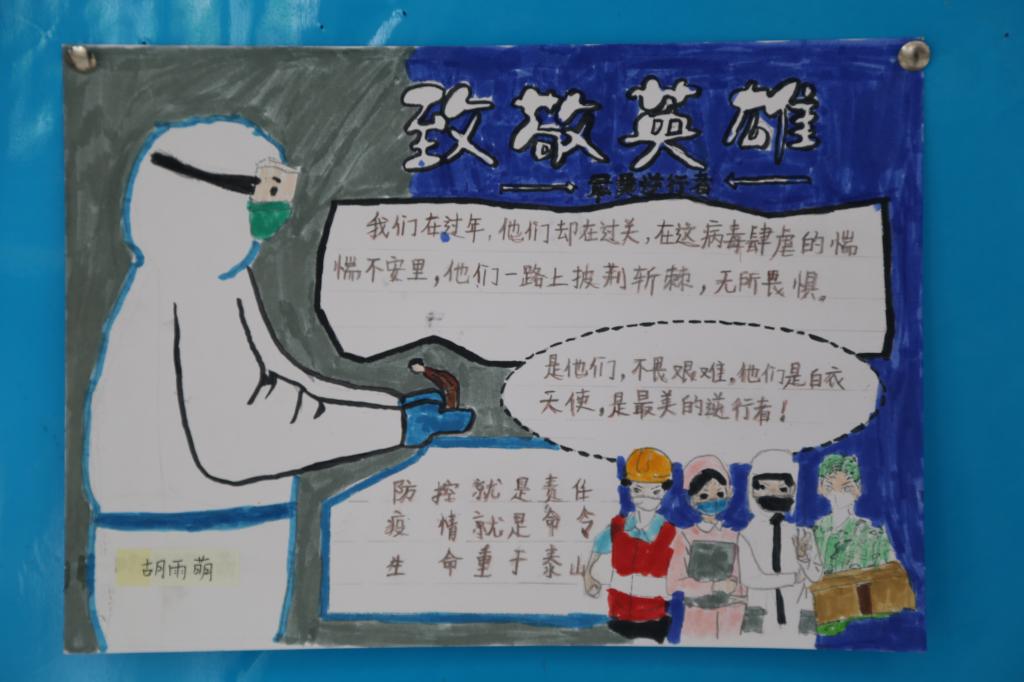 致敬英雄
最美逆行者
我们在过年,他们却在过关,在这病毒肆虐的惴
惴不安里,他们一路上披荆斩棘,无所畏惧。
是他们,不畏艰难,他们是白衣
天使,是最美的逆行者!
防控就是责任
疫情就是命令
生命重于泰山
胡雨萌